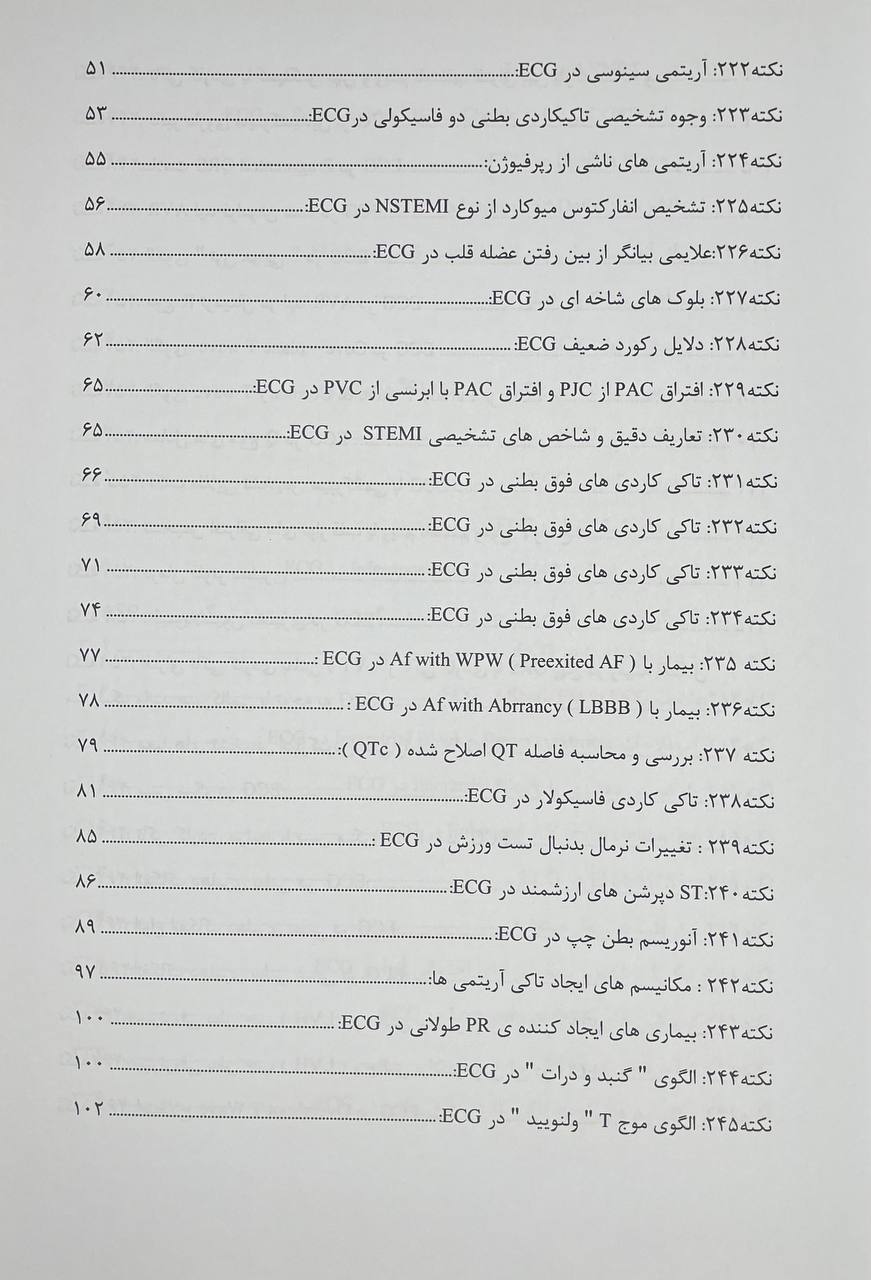 نکته۲۲۲: آریتمی سینوسی در ECG: ........ ۵۱
نکته۲۲۳: وجوه تشخیصی تاکیکاردی بطنی دو فاسیکولی درECG: ........ ۵۳
نکته۲۲۴: آریتمی های ناشی از رپرفیوژن: ........ ۵۵
نکته۲۲۵: تشخیص انفارکتوس میوکارد از نوع NSTEMI در ECG: ........ ۵۶
نکته۲۲۶:علایمی بیانگر از بین رفتن عضله قلب در ECG: ........ ۵۸
نکته۲۲۷: بلوک های شاخه ای در ECG: ........ ۶۰
نکته۲۲۸: دلایل رکورد ضعیف ECG: ........ ۶۲
نکته۲۲۹: افتراق PAC از PJC و افتراق PAC با ابرنسی از PVC در ECG: ........ ۶۵
نکته۲۳۰: تعاریف دقیق و شاخص های تشخیصی STEMI در ECG: ........ ۶۵
نکته۲۳۱: تاکی کاردی های فوق بطنی در ECG: ........ ۶۶
نکته۲۳۲: تاکی کاردی های فوق بطنی در ECG: ........ ۶۹
نکته۲۳۳: تاکی کاردی های فوق بطنی در ECG: ........ ۷۱
نکته۲۳۴: تاکی کاردی های فوق بطنی در ECG: ........ ۷۴
نکته ۲۳۵: بیمار با Af with WPW ( Preexited AF ) در ECG : ........ ۷۷
نکته۲۳۶: بیمار با Af with Abrrancy ( LBBB ) در ECG : ........ ۷۸
نکته ۲۳۷: بررسی و محاسبه فاصله QT اصلاح شده ( QTc ): ........ ۷۹
نکته۲۳۸: تاکی کاردی فاسیکولار در ECG: ........ ۸۱
نکته۲۳۹ : تغییرات نرمال بدنبال تست ورزش در ECG : ........ ۸۵
نکته۲۴۰:ST دپرشن های ارزشمند در ECG: ........ ۸۶
نکته۲۴۱: آنوریسم بطن چپ در ECG: ........ ۸۹
نکته۲۴۲ : مکانیسم های ایجاد تاکی آریتمی ها: ........ ۹۷
نکته۲۴۳: بیماری های ایجاد کننده ی PR طولانی در ECG: ........ ۱۰۰
نکته۲۴۴: الگوی " گنبد و درات " در ECG: ........ ۱۰۰
نکته۲۴۵: الگوی موج T " ولنویید " در ECG: ........ ۱۰۲